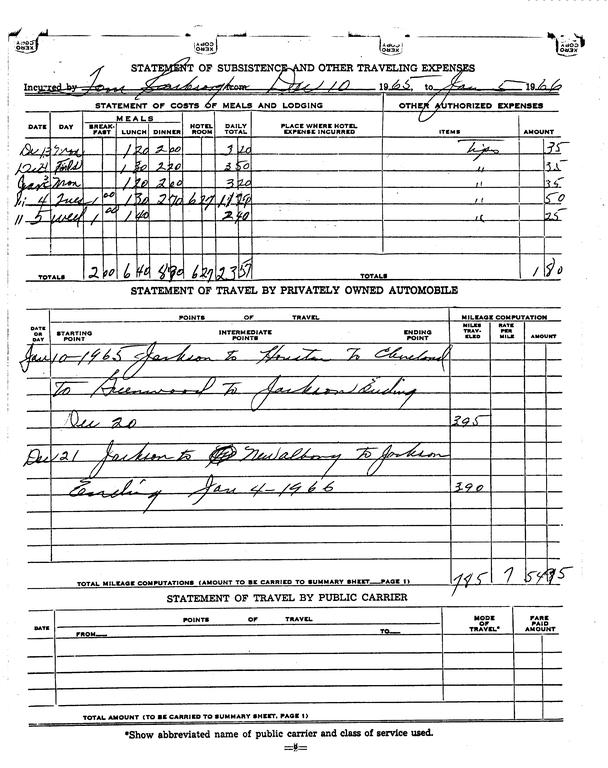 XEROX COPY XEROX COPY XEROX COPY XEROX COPY
STATEMENT OF SUBSISTENCE AND OTHER TRAVELING EXPENSES
Incurred by Tom Scarbrough from Dec 10 1965, to Jan 5 1966
STATEMENT OF COSTS OF MEALS AND LODGING OTHER AUTHORIZED EXPENSES
MEALS
DATE DAY BREAK-FAST LUNCH DINNER HOTEL ROOM DAILY TOTAL PLACE WHERE HOTEL EXPENSE INCURRED ITEMS AMOUNT
Dec 13 Mon 1 20 2 00 3 20 tips 35
1 30 2 20 3 50 " 35
Jan 3 Mon 1 20 2 00 3 20 " 35
" 4 Tues 1 00 1 30 2 70 6 27 " 50
" 5 Wed 1 00 1 40 2 40 " 25
TOTALS 2 00 6 40 8 90 6 27 23 57 TOTALS 1 80
STATEMENT OF TRAVEL BY PRIVATELY OWNED AUTOMOBILE
POINTS OF TRAVEL MILEAGE COMPUTATION
DATE OR DAY STARTING POINT INTERMEDIATE POINTS ENDING POINT MILES TRAV-ELED RATE PER MILE AMOUNT
Jan 10-1965 Jackson to Houston To Cleveland
to Greenwood to Jackson Ending
Dec 20 395
Dec 21 Jackson to New Albany to Jackson
Ending Jan 4-1966 390
TOTAL MILEAGE COMPUTATIONS (AMOUNT TO BE CARRIED TO SUMMARY SHEET—PAGE 1) 785 7 54 95
STATEMENT OF TRAVEL BY PUBLIC CARRIER
DATE POINTS OF TRAVEL MODE OF TRAVEL* FARE PAID AMOUNT
FROM— TO—
TOTAL AMOUNT (TO BE CARRIED TO SUMMARY SHEET, PAGE 1)
*Show abbreviated name of public carrier and class of service used.